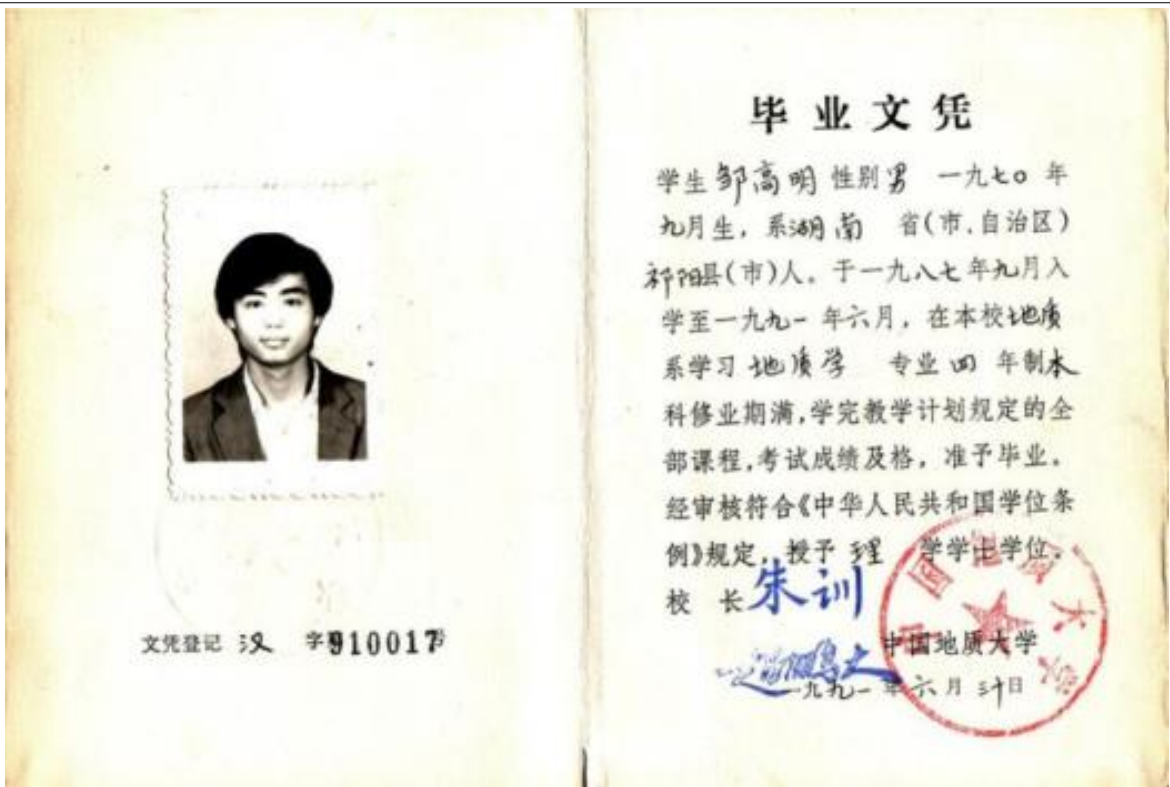 文凭登记 汉 字 910017号
毕业文凭
学生邹高明性别男 一九七〇年
九月生，系湖南 省(市、自治区)
祁阳县(市)人。于一九八七年九月入
学至一九九一年六月，在本校地质
系学习地质学 专业四年制本
科修业期满，学完教学计划规定的全
部课程，考试成绩及格，准予毕业。
经审核符合《中华人民共和国学位条
例》规定，授予理 学学士学位。
校 长 朱训
中国地质大学
赵鹏大
一九九一年六月三十日
中国地质大学